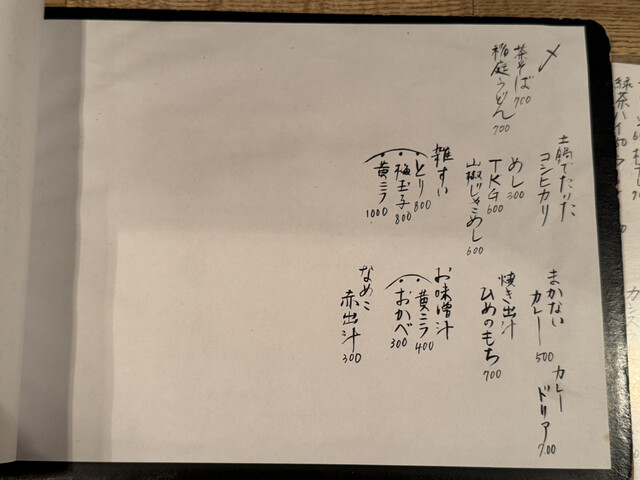 〆
茶そば 700
稲庭うどん 700
土鍋でたいた
コシヒカリ
めし 300
TKG 600
山椒じゃこめし 600
雑すい
・とり 800
・梅玉子 800
・黄ニラ 1000
まかない
カレー 500
カレー
ドリア 700
焼き出汁
ひめのもち 700
お味噌汁
・黄ニラ 400
・おかべ 300
なめこ
赤出汁 300
緑茶ハイ